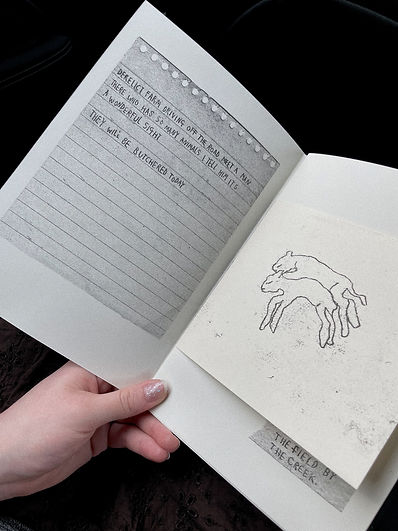 DERELICT FARM DRIVING OFF THE ROAD MEET A MAN
THERE WHO HAS SO MANY ANIMALS. I TELL HIM IT'S
A WONDERFUL SIGHT.
THEY WILL BE BUTCHERED TODAY
THE FIELD BY
THE CREEK.